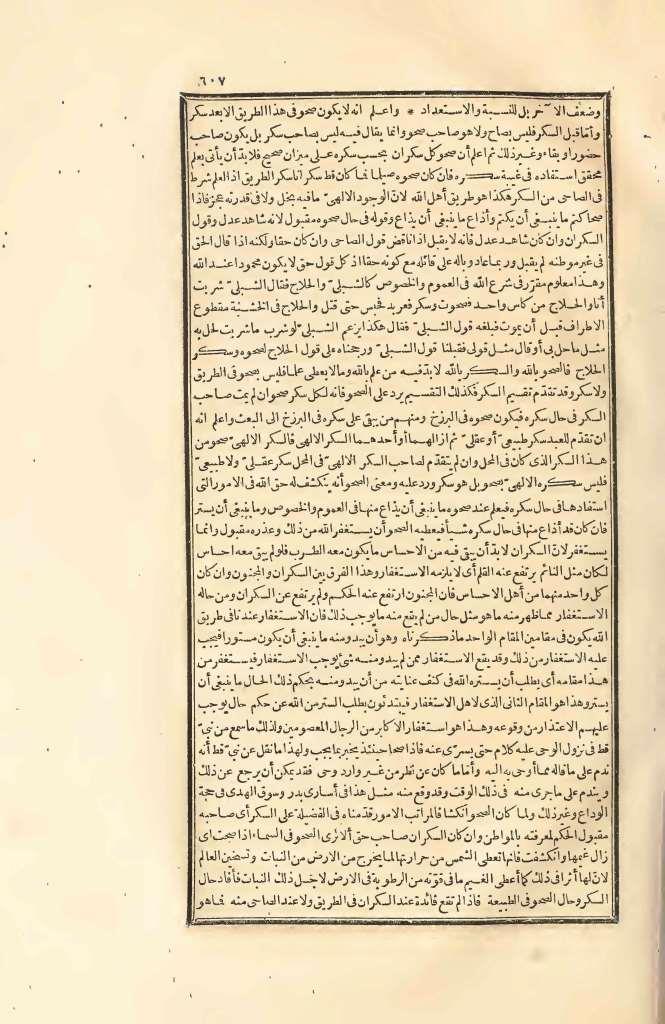 ٦٠٧
وضعف الآخر بل للنسبة والاستعداد * واعلم انه لا يكون صحو فى هذا الطريق الا بعد سكر
وأما قبل السكر فليس بصاح ولا هو صاحب صحو وانما يقال فيه ليس بصاحب سكر بل يكون صاحب
حضور أو بقاء وغير ذلك ثم اعلم أن صحو كل سكران بحسب سكره على ميزان صحيح فلا بد أن يأتى بعلم
محقق استفاده فى غيبة سكره فان كان صحوه صيلما فما كان قط سكران سكر الطريق اذ العلم شرط
فى الصاحى من السكر هكذا هو طريق أهل الله لانّ الوجود الالهىّ ما فيه بخل ولا فى قدرته عجز فاذا
صحا كتم ما ينبغى أن يكتم وأذاع ما ينبغى أن يذاع وقوله فى حال صحوه مقبول لانه شاهد عدل وقول
السكران وان كان شاهد عدل فانه لا يقبل اذا ناقض قول الصاحى وان كان حقا ولكنه اذا قال الحق
فى غير موطنه لم يقبل وربما عاد وباله على قائله مع كونه حقا اذ كل قول حق لا يكون محمودا عند الله
وهذا معلوم مقرّر فى شرع الله فى العموم والخصوص كالشبلىّ والحلاج فقال الشبلىّ شربت
أنا والحلاج من كاس واحد فصحوت وسكر فعربد فحبس حتى قتل والحلاج فى الخشبة مقطوع
الاطراف قبل أن يموت فبلغه قول الشبلىّ فقال هكذا يزعم الشبلىّ لو شرب ما شربت لحل به
مثل ما حل بى أو قال مثل قولى فقبلنا قول الشبلىّ ورجحناه على قول الحلاج لصحوه وسكر
الحلاج فالصحو بالله والسكر بالله لا بد فيه من علم بالله وما لا يعطى علما فليس بصحو فى الطريق
ولا سكر وقد تقدّم تقسيم السكر فكذلك التقسيم يرد على الصحو فانه لكل سكر صحو ان لم يمت صاحب
السكر فى حال سكره فيكون صحوه فى البرزخ ومنهم من يبقى على سكره فى البرزخ الى البعث واعلم انه
ان تقدّم للعبد سكر طبيعىّ أو عقلىّ ثم ازالهما أو أحدهما السكر الالهى فالسكر الالهىّ صحو من
هذا السكر الذى كان فى المحل وان لم يتقدّم لصاحب السكر الالهىّ فى المحل سكر عقلىّ ولا طبيعىّ
فليس سكره الالهىّ بصحو بل هو سكر ورد عليه ومعنى الصحو أنه ينكشف له حق الله فى الامور التى
استفادها فى حال سكره فيعلم عند صحوه ما ينبغى أن يذاع منها فى العموم والخصوص وما ينبغى أن يستر
فان كان قد أذاع منها فى حال سكره شيأ فيعطيه الصحو أن يستغفر الله من ذلك وعذره مقبول وانما
يستغفر لانّ السكران لا بدّ أن يبقى فيه من الاحساس ما يكون معه الطرب فلو لم يبق معه احساس
لكان مثل النائم يرتفع عنه القلم أى لا يلزمه الاستغفار وهذا الفرق بين السكران والمجنون وان كان
كل واحد منهما من أهل الاحساس فان المجنون ارتفع عنه الحكم ولم يرتفع عن السكران ومن حاله
الاستغفار مما ظهر منه ما هو مثل حال من لم يقع منه ما يوجب ذلك فان الاستغفار عندنا فى طريق
الله يكون فى مقامين المقام الواحد ما ذكرناه وهو أن يبدو منه ما ينبغى أن يكون مستورا فيجب
عليه الاستغفار من ذلك وقد يقع الاستغفار ممن لم يبد ومنه شئ يوجب الاستغفار فيستغفر من
هذا مقامه أى يطلب أن يستره الله فى كنف عنايته من أن يبدو منه بحكم ذلك الحال ما ينبغى أن
يستر وهذا هو المقام الثانى الذى لاهل الاستغفار فيبتدئون بطلب الستر من الله عن حكم حال يوجب
عليهم الاعتذار من وقوعه وهذا هو استغفار الاكابر من الرجال المعصومين ولذلك ما سمع من نبىّ
قط فى نزول الوحى عليه كلام حتى يسرّى عنه فاذا صحا حينئذ يخبر بما يجب ولهذا ما نقل عن نبىّ قط أنه
ندم على ما قاله مما أوحى به اليه وأما ما كان عن نظر من غير وارد وحى فقد يمكن أن يرجع عن ذلك
ويندم على ما جرى منه فى ذلك الوقت وقد وقع منه مثل هذا فى أسارى بدر وسوق الهدى فى حجة
الوداع وغير ذلك ولما كان الصحو انكشافا لمراتب الامور قدّمناه فى الفضيلة على السكر أى صاحبه
مقبول الحكم لمعرفته بالمواطن وان كان السكران صاحب حق ألا ترى الصحو فى السماء اذا صحت اى
زال غيمها وانكشفت فانها تعطى الشمس من حرارتها لما يخرج من الارض من النبات وتسخين العالم
لانّ لها أثرا فى ذلك كما أعطى الغيم ما فى قوّته من الرطوبة فى الارض لاجل ذلك النبات فأفاد حال
السكر وحال الصحو فى الطبيعة فاذا لم تقع فائدة عند السكران فى الطريق ولا عند الصاحى منه فما هو